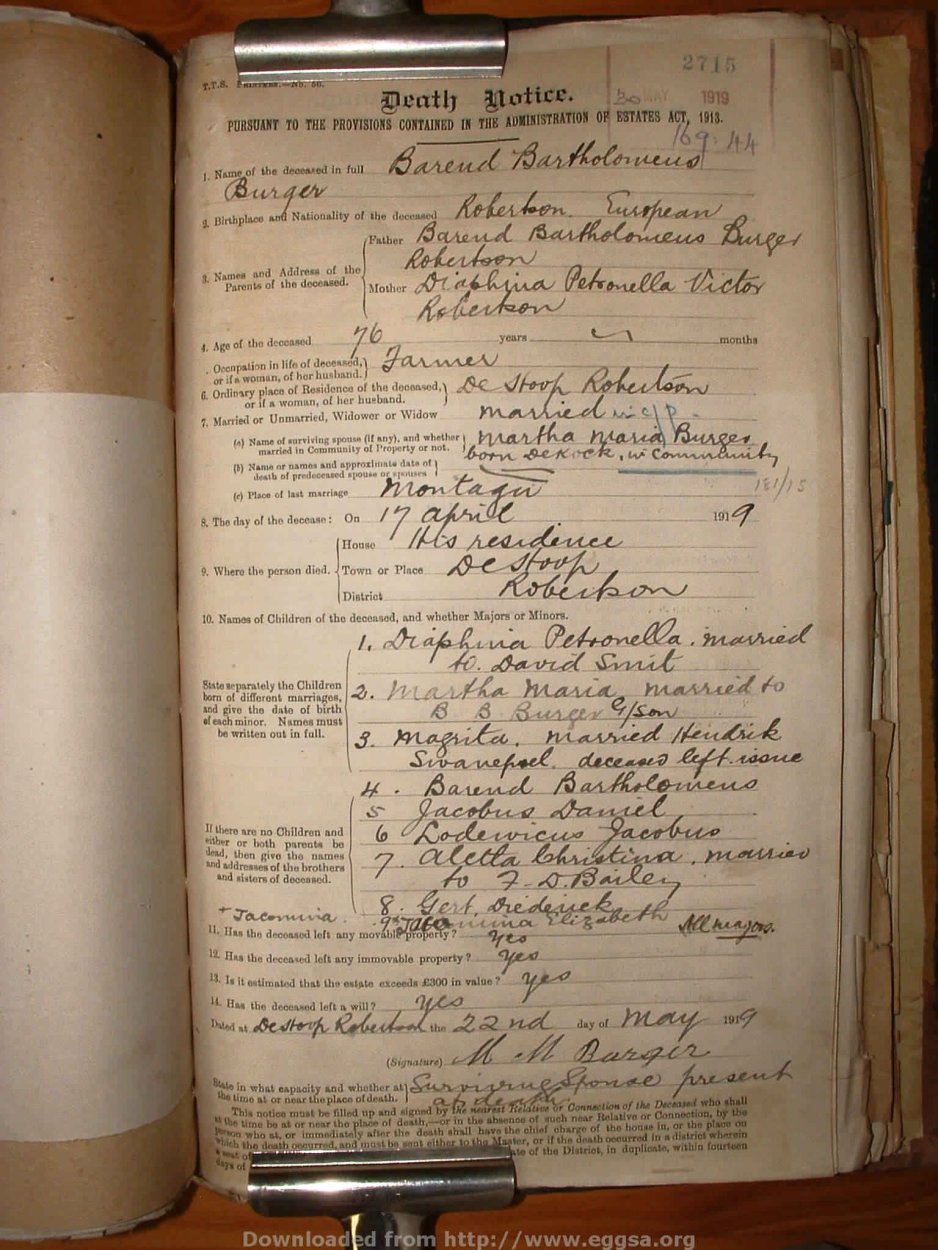 2715
T.T.S. PRINTERS.—No. 56.
Death Notice.
30 MAY 1919
PURSUANT TO THE PROVISIONS CONTAINED IN THE ADMINISTRATION OF ESTATES ACT, 1913.
169.44
1. Name of the deceased in full Barend Bartholomeus
Burger
2. Birthplace and Nationality of the deceased Robertson. European
3. Names and Address of the Parents of the deceased.
Father Barend Bartholomeus Burger
Robertson
Mother Diaphina Petronella Victor
Robertson
4. Age of the deceased 76 years months
Occupation in life of deceased, or if a woman, of her husband. Farmer
6. Ordinary place of Residence of the deceased, or if a woman, of her husband. De Hoop Robertson
7. Married or Unmarried, Widower or Widow married in c/p
(a) Name of surviving spouse (if any), and whether married in Community of Property or not. Martha Maria Burger
born DeKock, in Community
(b) Name or names and approximate date of death of predeceased spouse or spouses
181/15
(c) Place of last marriage Montagu
8. The day of the decease: On 17 April 1919
9. Where the person died.
House His residence
Town or Place De Hoop
District Robertson
10. Names of Children of the deceased, and whether Majors or Minors.
State separately the Children born of different marriages, and give the date of birth of each minor. Names must be written out in full.
1. Diaphina Petronella. married
to. David Smit
2. Martha Maria, married to
B B Burger G/son
3. Magrita. married Hendrik
Swanepoel. deceased left issue
If there are no Children and either or both parents be dead, then give the names and addresses of the brothers and sisters of deceased.
4. Barend Bartholomeus
5 Jacobus Daniel
6 Lodewicus Jacobus
7. Aletta Christina, married
to F. D. Barley
8. Gert Diederick
+ Jacomina
9 Jacomina Elizabeth All majors.
11. Has the deceased left any movable property? Yes
12. Has the deceased left any immovable property? Yes
13. Is it estimated that the estate exceeds £300 in value? Yes
14. Has the deceased left a will? Yes
Dated at De Hoop Robertson the 22nd day of May 1919
(Signature) M M Burger
State in what capacity and whether at the time at or near the place of death. Surviving Spouse present
at death.
This notice must be filled up and signed by the nearest Relative or Connection of the Deceased who shall
at the time be at or near the place of death,—or in the absence of such near Relative or Connection, by the
person who at, or immediately after the death shall have the chief charge of the house in, or the place on
which the death occurred, and must be sent either to the Master, or if the death occurred in a district wherein
a seat of ate of the District, in duplicate, within fourteen
days of
Downloaded from http://www.eggsa.org